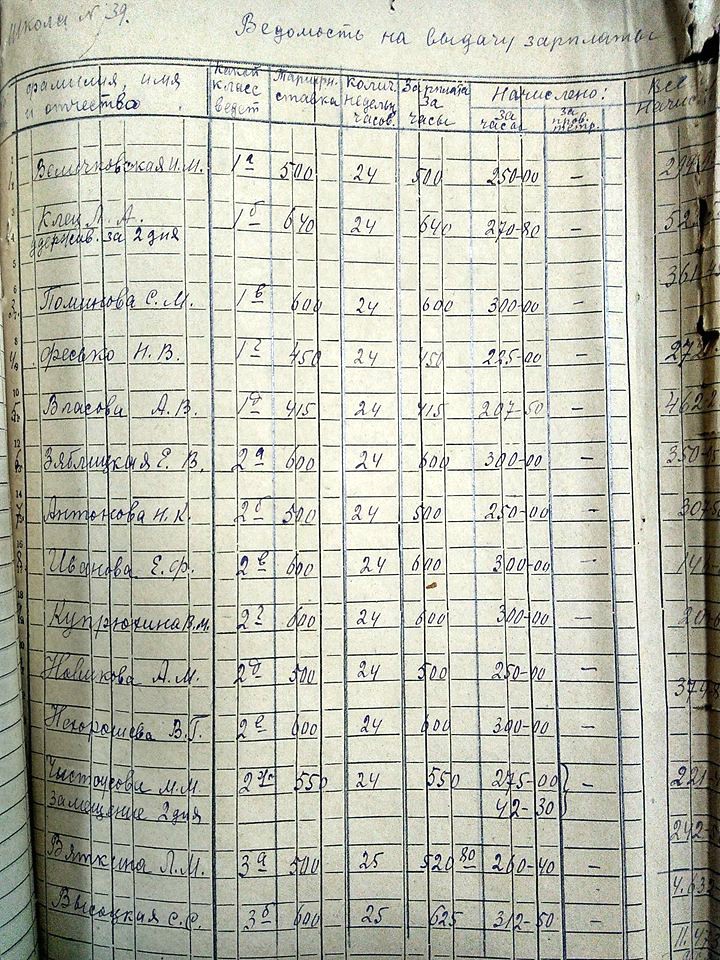 Школа № 39.
Ведомость на выдачу зарплаты
фамилия, имя и отчество Какой класс ведет Тарифн. ставка Колич. недельн. часов. Зарплата за часы Начислено: за часы за пров. тетр. Все Начис
Величковская И.М. 1а 500 24 500 250-00 —
Клец Л. А. 1б 640 24 640 270-80 —
удержив. за 2 дня
Поминова С. М. 1в 600 24 600 300-00 —
Фесько Н. В. 1г 450 24 450 225-00 —
Власова А. В. 1д 415 24 415 207-50 —
Зяблицкая Е. В. 2а 600 24 600 300-00 —
Антонова Н. К. 2б 500 24 500 250-00 —
Иванова Е. Ф. 2в 600 24 600 300-00 —
Купрюхина В.М. 2г 600 24 600 300-00 —
Новикова А. М. 2д 500 24 500 250-00 —
Нехорошева В. Г. 2е 600 24 600 300-00 —
Чистоусова М.М. 2ж 550 24 550 275-00 —
замещение 2 дня 42-30
Вяткина Л.М. 3а 500 25 520 80 260-40 —
Высоцкая С.С. 3б 600 25 625 312-50 —